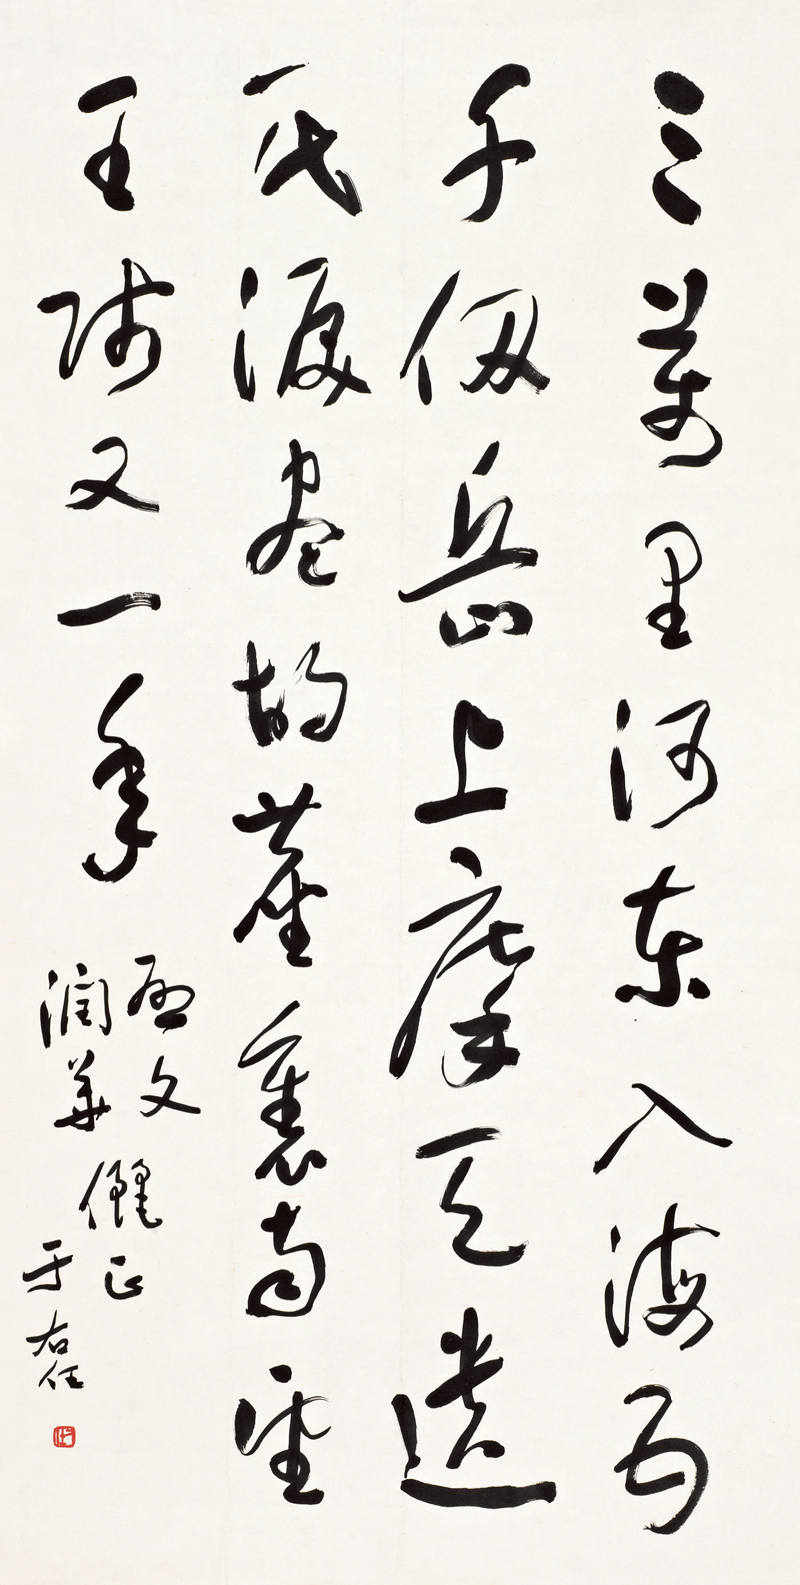 三萬里河東入海五
千仞岳上摩天遺
民淚盡胡塵裏南望
王師又一年
啟文
潤華
儷正
于右任